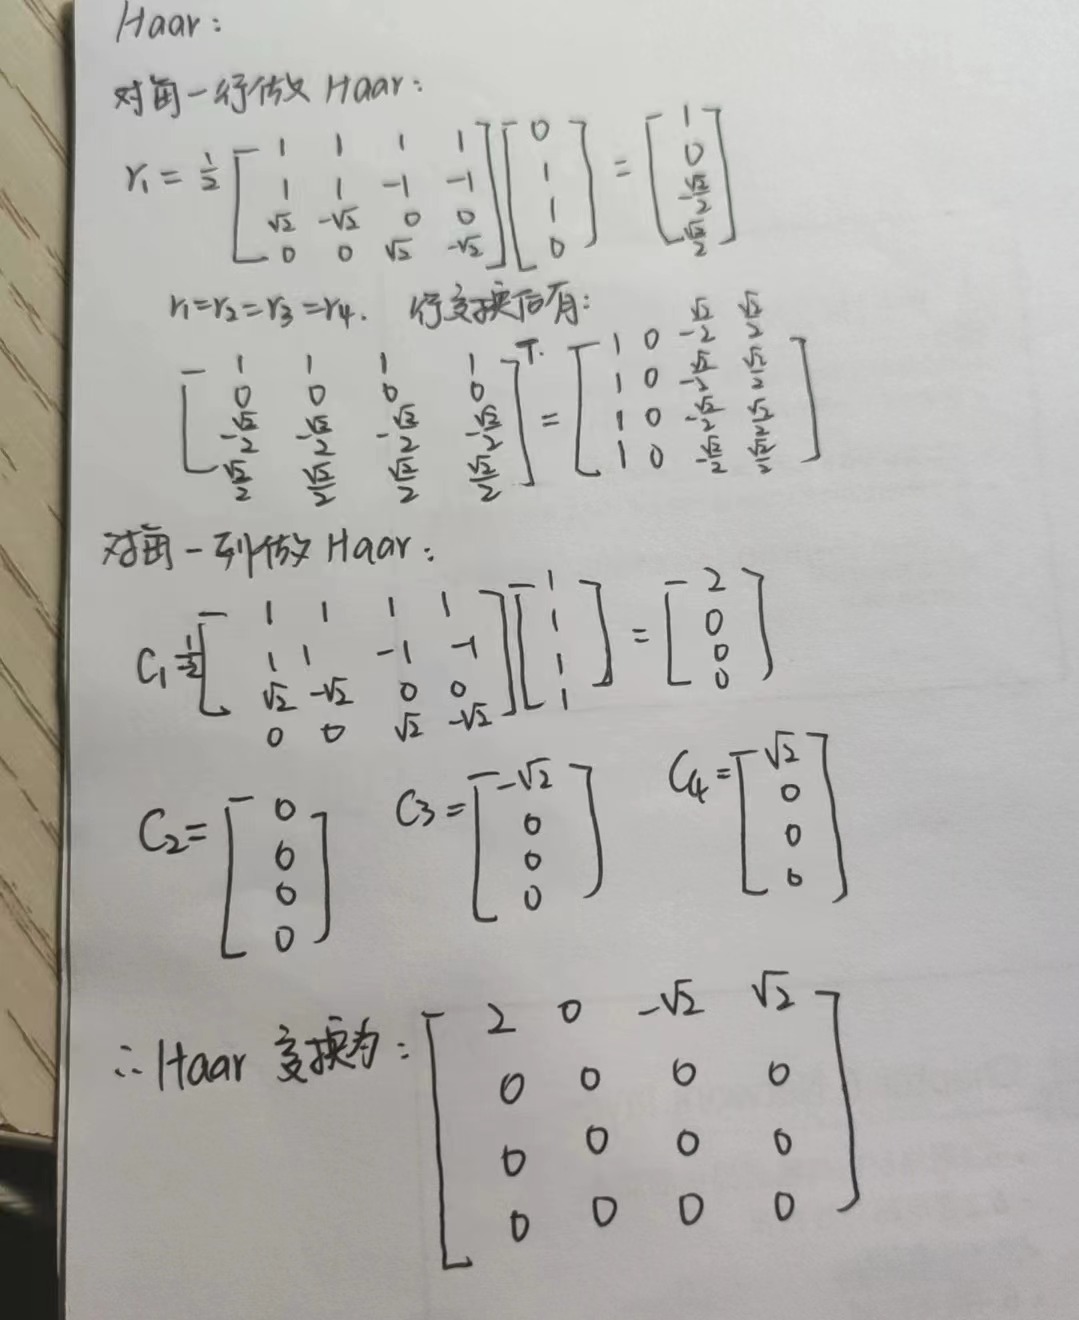 Haar:
对每一行做 Haar:
r₁ = 1/2 [1 1 1 1; 1 1 -1 -1; √2 -√2 0 0; 0 0 √2 -√2] [0; 1; 1; 0] = [1; 0; -√2/2; √2/2]
r₁=r₂=r₃=r₄. 行变换后有:
[1 1 1 1; 0 0 0 0; -√2/2 -√2/2 -√2/2 -√2/2; √2/2 √2/2 √2/2 √2/2]ᵀ. = [1 0 -√2/2 √2/2; 1 0 -√2/2 √2/2; 1 0 -√2/2 √2/2; 1 0 -√2/2 √2/2]
对每一列做 Haar:
C₁ = 1/2 [1 1 1 1; 1 1 -1 -1; √2 -√2 0 0; 0 0 √2 -√2] [1; 1; 1; 1] = [2; 0; 0; 0]
C₂ = [0; 0; 0; 0] C₃ = [-√2; 0; 0; 0] C₄ = [√2; 0; 0; 0]
∴ Haar 变换为: [2 0 -√2 √2; 0 0 0 0; 0 0 0 0; 0 0 0 0]